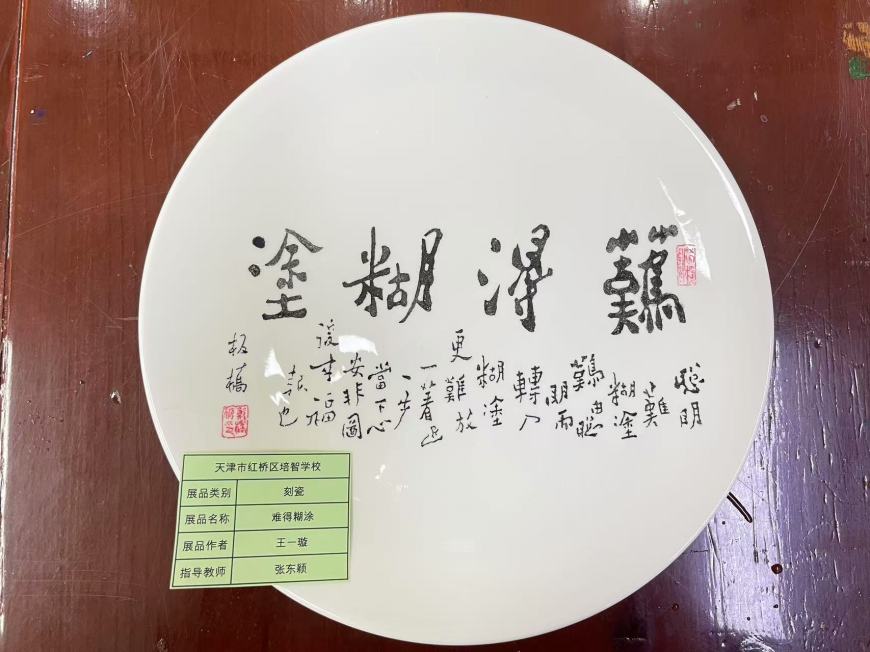 難得糊塗
聰明
難
糊塗
難由聰
明而
轉入
糊塗
更難放
一著退
一步
當下心
安非圖
後来福
報也
板橋
天津市红桥区培智学校
展品类别 刻瓷
展品名称 难得糊涂
展品作者 王一璇
指导教师 张东颖